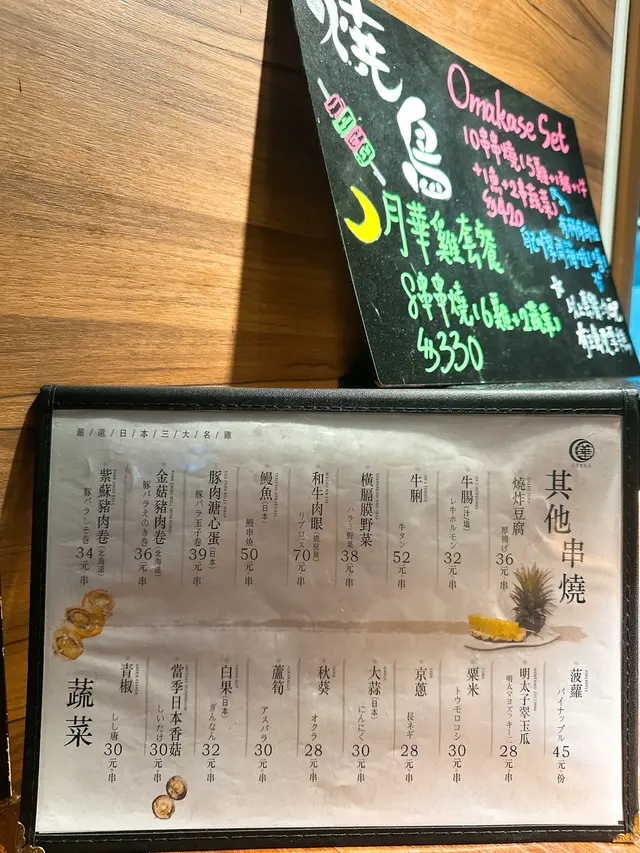 燒鳥
Omakase Set
10串串燒
$420
月華雞套餐
8串串燒(6雞+2蔬菜)
$330
嚴/選/日/本/三/大/名/雞
其他串燒
燒炸豆腐
厚揚げ
36元·串
牛腸(汁/塩)
レ牛ホルモン
32元·串
牛脷
牛タン
52元·串
橫膈膜野菜
ハラミ野菜
38元·串
和牛肉眼(鹿兒島)
リブロース
70元·串
鰻魚(日本)
鰻串燒
50元·串
豚肉溏心蛋(日本)
豚バラ玉子巻
39元·串
金菇豬肉卷(北海道)
豚バラえのき巻
36元·串
紫蘇豬肉卷(北海道)
豚バラしそ巻
34元·串
菠蘿
パイナップル
45元·份
明太子翠玉瓜
明太マヨズッキーニ
28元·串
粟米
トウモロコシ
30元·串
京蔥
長ネギ
28元·串
大蒜(日本)
にんにく
30元·串
秋葵
オクラ
28元·串
蘆筍
アスパラ
30元·串
白果(日本)
ぎんなん
32元·串
當季日本香菇
しいたけ
30元·串
青椒
しし唐
30元·串
蔬菜